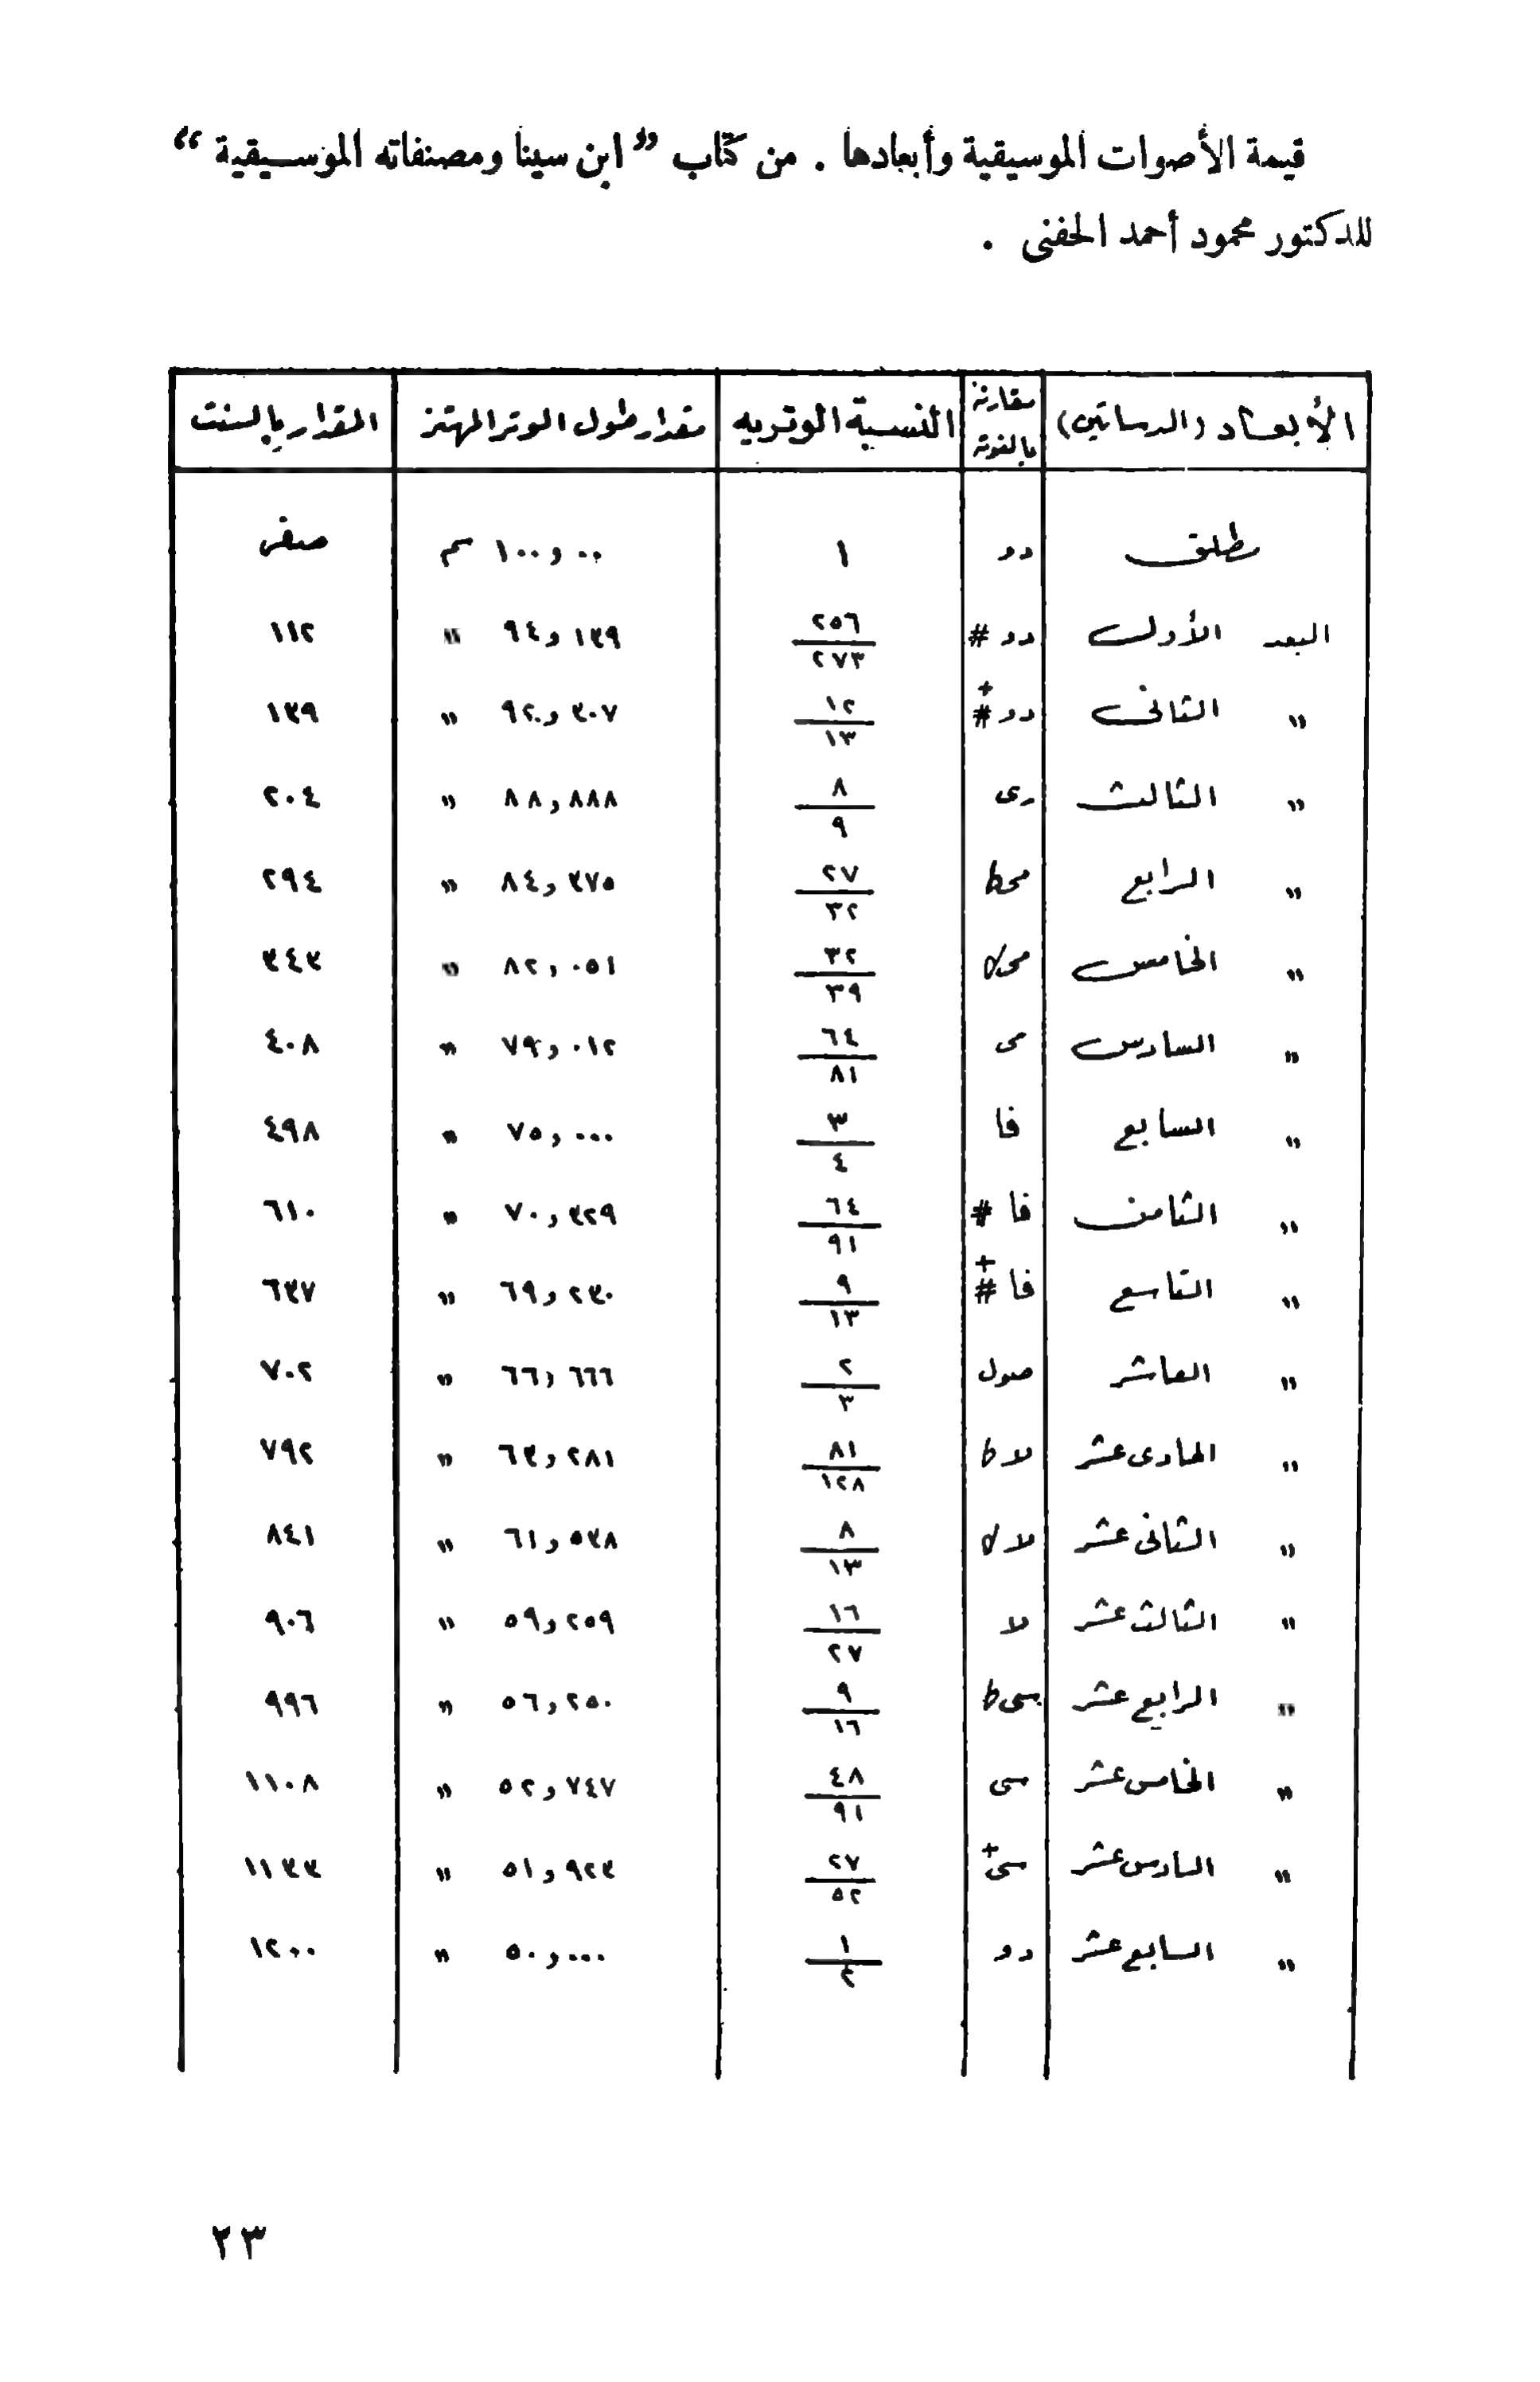 قيمة الأصوات الموسيقية وأبعادها . من كتاب ” ابن سينا ومصنفاته الموسيقية “
للدكتور محمود أحمد الحفنى .
الأبعاد (الدساتين) | مقارنة بالنوتة | النسبة الوترية | مقدار طول الوتر المهتز | المقدار بالسنت
مطلق | دو | ١ | ١٠٠و٠٠ سم | صفر
البعد الأول | دو # | ٢٥٦/٢٧٣ | ٩٤و١٣٩ " | ١١٢
" الثانى | دو #+ | ١٢/١٣ | ٩٢و٣٠٧ " | ١٣٩
" الثالث | رى | ٨/٩ | ٨٨و٨٨٨ " | ٢٠٤
" الرابع | مى b | ٢٧/٣٢ | ٨٤و٣٧٥ " | ٢٩٤
" الخامس | مى | ٣٢/٣٩ | ٨٢و٠٥١ " | ٣٤٣
" السادس | مى | ٦٤/٨١ | ٧٩و٠١٢ " | ٤٠٨
" السابع | فا | ٣/٤ | ٧٥و٠٠٠ " | ٤٩٨
" الثامن | فا # | ٦٤/٩١ | ٧٠و٣٢٩ " | ٦١٠
" التاسع | فا #+ | ٩/١٣ | ٦٩و٢٣٠ " | ٦٣٧
" العاشر | صول | ٢/٣ | ٦٦و٦٦٦ " | ٧٠٢
" الحادى عشر | لا b | ٨١/١٢٨ | ٦٣و٢٨١ " | ٧٩٢
" الثانى عشر | لا | ٨/١٣ | ٦١و٥٣٨ " | ٨٤١
" الثالث عشر | لا | ١٦/٢٧ | ٥٩و٢٥٩ " | ٩٠٦
" الرابع عشر | سى b | ٩/١٦ | ٥٦و٢٥٠ " | ٩٩٦
" الخامس عشر | سى | ٤٨/٩١ | ٥٢و٧٤٧ " | ١١٠٨
" السادس عشر | سى+ | ٢٧/٥٢ | ٥١و٩٢٣ " | ١١٣٣
" السابع عشر | دو | ١/٢ | ٥٠و٠٠٠ " | ١٢٠٠
٢٣